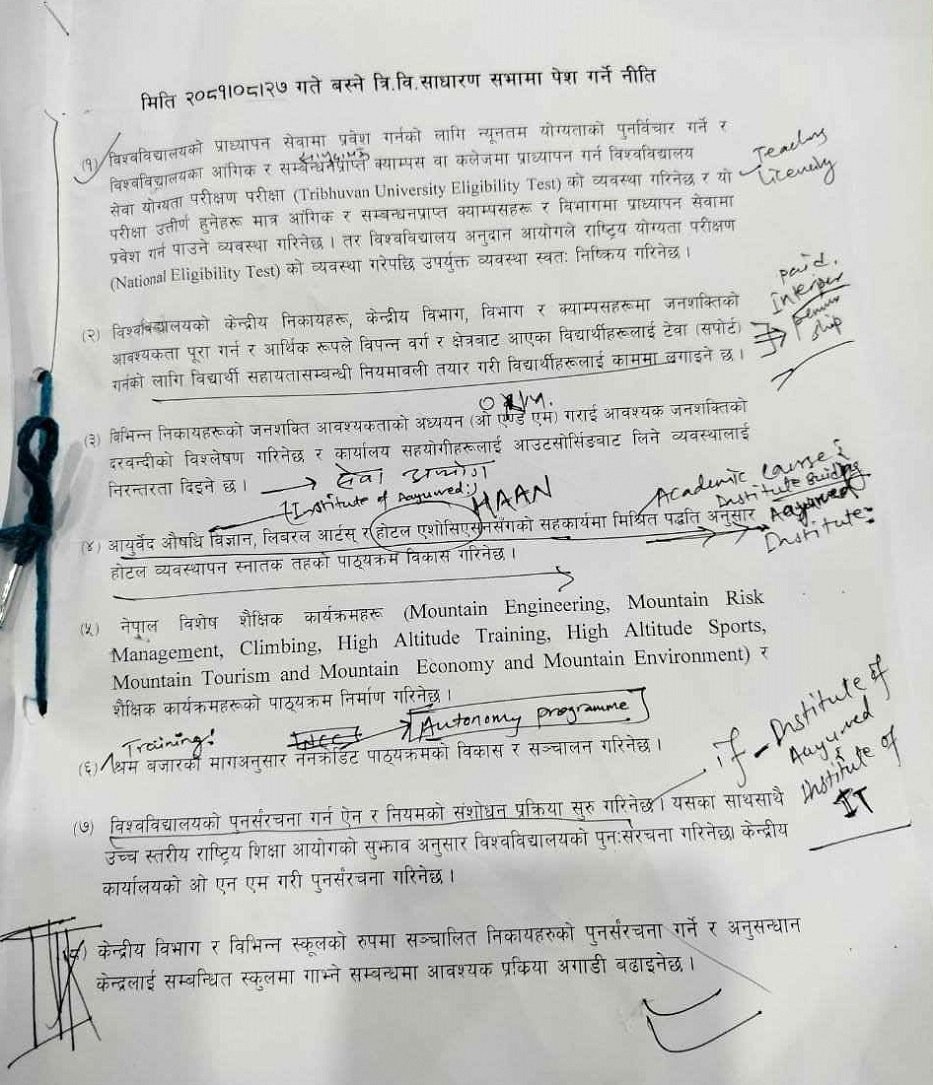 मिति २०८१।०८।२७ गते बस्ने त्रि.वि.साधारण सभामा पेश गर्ने नीति
(१) विश्वविद्यालयको प्राध्यापन सेवामा प्रवेश गर्नको लागि न्यूनतम योग्यताको पुनर्विचार गर्ने र
विश्वविद्यालयका आंगिक र सम्बन्धनप्राप्त क्याम्पस वा कलेजमा प्राध्यापन गर्न विश्वविद्यालय
Teaching
सेवा योग्यता परीक्षण परीक्षा (Tribhuvan University Eligibility Test) को व्यवस्था गरिनेछ र यो
परीक्षा उत्तीर्ण हुनेहरू मात्र आंगिक र सम्बन्धनप्राप्त क्याम्पसहरू र विभागमा प्राध्यापन सेवामा
प्रवेश गर्न पाउने व्यवस्था गरिनेछ । तर विश्वविद्यालय अनुदान आयोगले राष्ट्रिय योग्यता परीक्षण
(National Eligibility Test) को व्यवस्था गरेपछि उपर्युक्त व्यवस्था स्वतः निष्क्रिय गरिनेछ ।
paid.
(२) विश्वविद्यालयको केन्द्रीय निकायहरू, केन्द्रीय विभाग, विभाग र क्याम्पसहरूमा जनशक्तिको
आवश्यकता पूरा गर्न र आर्थिक रूपले विपन्न वर्ग र क्षेत्रबाट आएका विद्यार्थीहरूलाई टेवा (सपोर्ट)
ship
गर्नको लागि विद्यार्थी सहायतासम्बन्धी नियमावली तयार गरी विद्यार्थीहरूलाई काममा लगाइने छ ।
(३) विभिन्न निकायहरूको जनशक्ति आवश्यकताको अध्ययन (ओ एण्ड एम) गराई आवश्यक जनशक्तिको
दरवन्दीको विश्लेषण गरिनेछ र कार्यालय सहयोगीहरूलाई आउटसोसिंङबाट लिने व्यवस्थालाई
निरन्तरता दिइने छ ।
सेवा आयोग
(Institute of Aayurved)
HAAN
Academic Course &
Institute Building
Aayurved
Institute
(४) आयुर्वेद औषधि विज्ञान, लिबरल आर्टस् र होटल एशोसिएसनसँगको सहकार्यमा मिश्रित पद्धति अनुसार
होटल व्यवस्थापन स्नातक तहको पाठ्यक्रम विकास गरिनेछ ।
(५) नेपाल विशेष शैक्षिक कार्यक्रमहरू (Mountain Engineering, Mountain Risk
Management, Climbing, High Altitude Training, High Altitude Sports,
Mountain Tourism and Mountain Economy and Mountain Environment) र
शैक्षिक कार्यक्रमहरूको पाठ्यक्रम निर्माण गरिनेछ ।
Training
Autonomy programme
(६) श्रम बजारको मागअनुसार ननक्रेडिट पाठ्यक्रमको विकास र सञ्चालन गरिनेछ ।
if - Institute of
Aayurved
&
Institute of
IT
(७) विश्वविद्यालयको पुनर्संरचना गर्न ऐन र नियमको संशोधन प्रक्रिया सुरु गरिनेछ । यसका साथसाथै
उच्च स्तरीय राष्ट्रिय शिक्षा आयोगको सुझाव अनुसार विश्वविद्यालयको पुनःसंरचना गरिनेछ। केन्द्रीय
कार्यालयको ओ एन एम गरी पुनर्संरचना गरिनेछ ।
(८) केन्द्रीय विभाग र विभिन्न स्कूलको रुपमा सञ्चालित निकायहरुको पुनर्संरचना गर्ने र अनुसन्धान
केन्द्रलाई सम्बन्धित स्कुलमा गाभ्ने सम्बन्धमा आवश्यक प्रकिया अगाडी बढाइनेछ ।